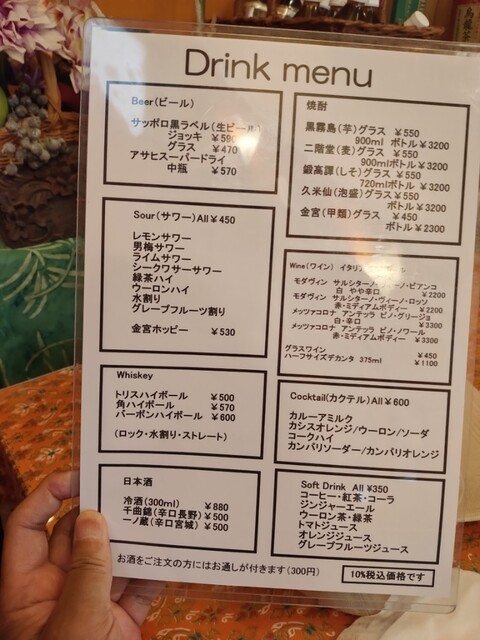 Drink menu
Beer(ビール)
サッポロ黒ラベル(生ビール)
ジョッキ ￥590
グラス ￥470
アサヒスーパードライ
中瓶 ￥570
Sour(サワー)All￥450
レモンサワー
男梅サワー
ライムサワー
シークワサーサワー
緑茶ハイ
ウーロンハイ
水割り
グレープフルーツ割り
金宮ホッピー ￥530
Whiskey
トリスハイボール ￥500
角ハイボール ￥570
バーボンハイボール ￥600
(ロック・水割り・ストレート)
日本酒
冷酒(300ml) ￥880
千曲錦(辛口長野) ￥500
一ノ蔵(辛口宮城) ￥500
焼酎
黒霧島(芋)グラス ￥550
900ml ボトル￥3200
二階堂(麦)グラス ￥550
900mlボトル￥3200
鍛高譚(しそ)グラス ￥550
720mlボトル ￥3200
久米仙(泡盛)グラス￥550
ボトル ￥3200
金宮(甲類)グラス ￥450
ボトル￥2300
Wine(ワイン) イタリア
モダヴィン サルシターノ ーノ・ビアンコ
白 やや辛口 ￥2200
モダヴィン サルシターノ・ヴィーノ・ロッソ
赤・ミディアムボディー ￥2200
メッツァコロナ アンテッラ ピノ・グリージョ
白・辛口 ￥3300
メッツァコロナ アンテッラ ピノ・ノワール
赤・ミディアムボディー ￥3300
グラスワイン ￥450
ハーフサイズデカンタ 375ml ￥1100
Cocktail(カクテル)All￥600
カルーアミルク
カシスオレンジ/ウーロン/ソーダ
コークハイ
カンパリソーダー/カンパリオレンジ
Soft Drink All ¥350
コーヒー・紅茶・コーラ
ジンジャーエール
ウーロン茶・緑茶
トマトジュース
オレンジジュース
グレープフルーツジュース
お酒をご注文の方にはお通しが付きます(300円)
10%税込価格です